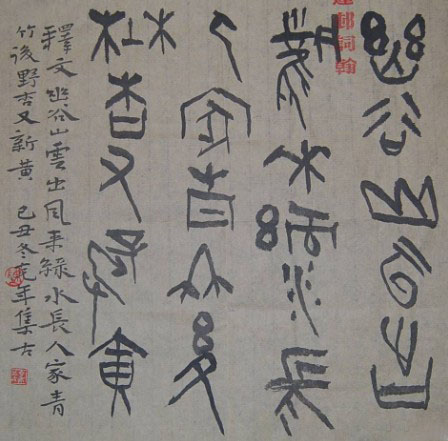 幽谷山雲出
風來綠水長
人家青竹後
野杏又新黃
釋文 幽谷山雲出風來綠水長人家青
竹後野杏又新黃 己丑冬 年集古
詞翰